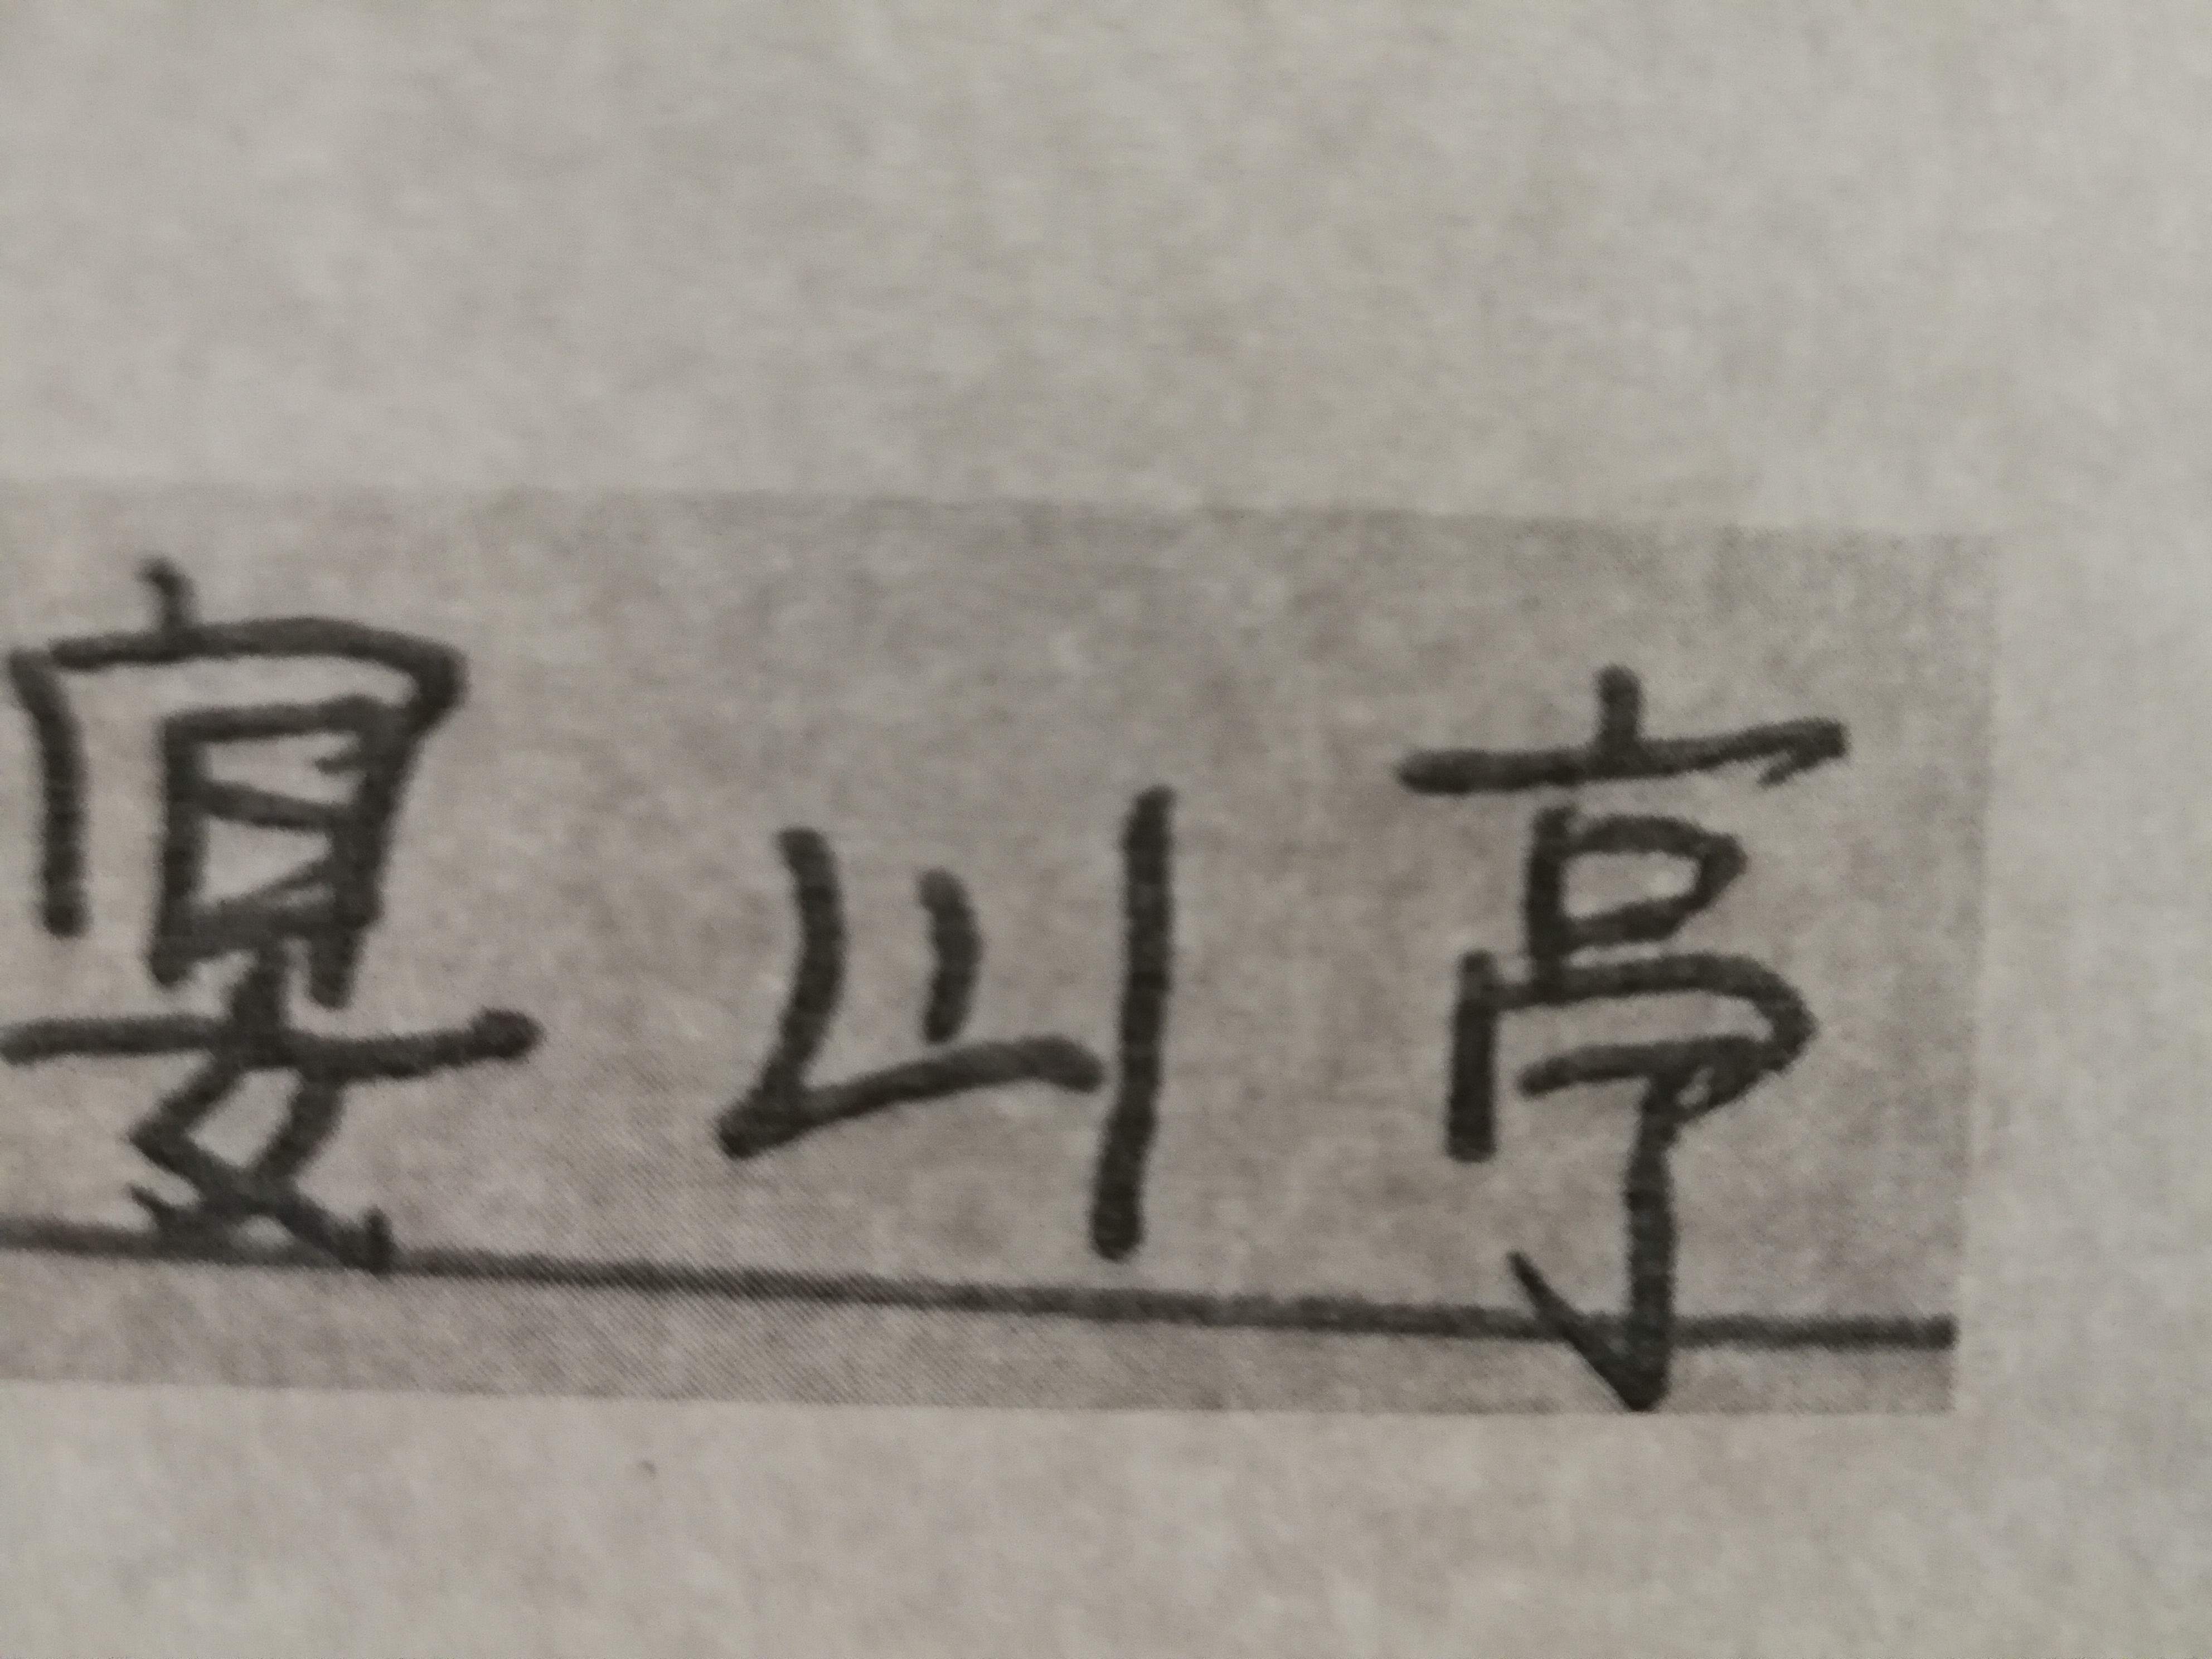 宴山亭